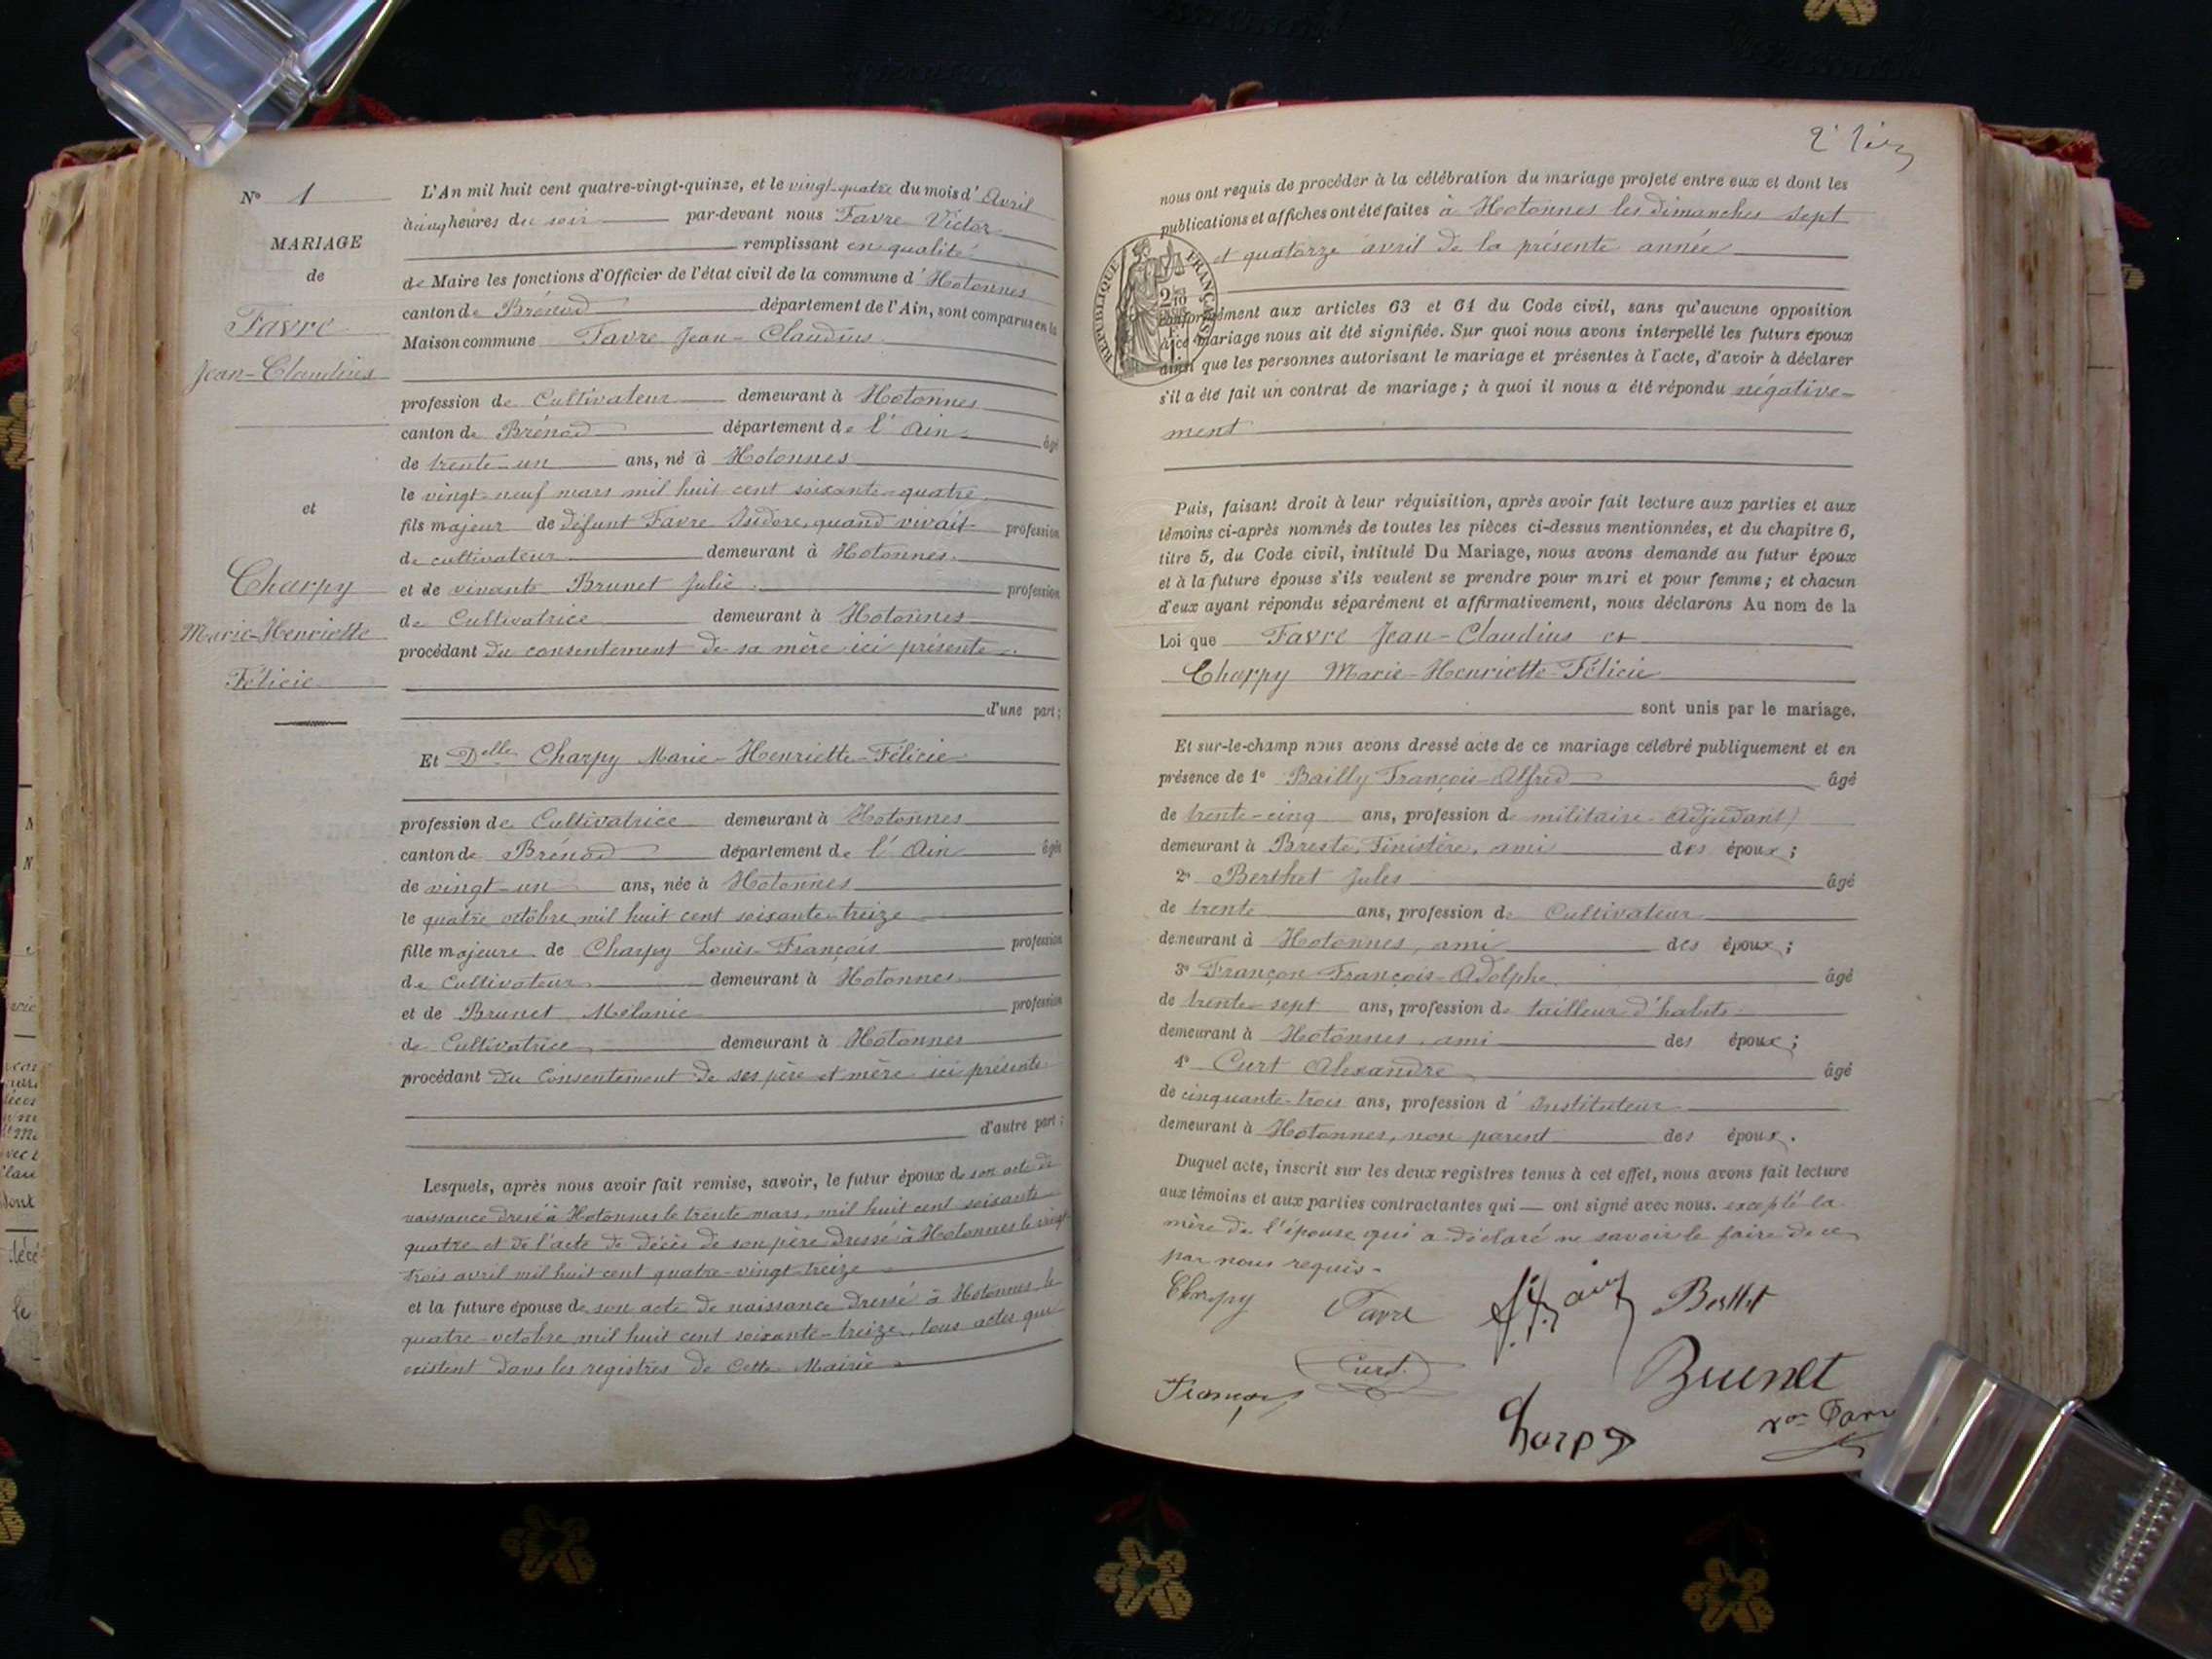 N° 1
MARIAGE
de
Favre
Jean-Claudius
et
Charpy
Marie-Henriette
Félicie
L'An mil huit cent quatre-vingt-quinze, et le vingt-quatre du mois d'Avril
à cinq heures du soir par-devant nous Favre Victor
remplissant en qualité
de Maire les fonctions d'Officier de l'état civil de la commune d'Hotonnes
canton de Brénod département de l'Ain, sont comparus en la
Maison commune Favre Jean-Claudius
profession de Cultivateur demeurant à Hotonnes
canton de Brénod département de l'Ain âgé
de trente-un ans, né à Hotonnes
le vingt-neuf mars mil huit cent soixante-quatre
fils majeur de défunt Favre Isidore, quand vivait profession
de cultivateur demeurant à Hotonnes
et de vivante Brunet Julie profession
de Cultivatrice demeurant à Hotonnes
procédant du consentement de sa mère ici présente
d'une part ;
Et Delle Charpy Marie-Henriette-Félicie
profession de Cultivatrice demeurant à Hotonnes
canton de Brénod département de l'Ain âgée
de vingt-un ans, née à Hotonnes
le quatre octobre mil huit cent soixante-treize
fille majeure de Charpy Louis-François profession
de Cultivateur demeurant à Hotonnes
et de Brunet Mélanie profession
de Cultivatrice demeurant à Hotonnes
procédant du consentement de ses père et mère ici présents
d'autre part ;
Lesquels, après nous avoir fait remise, savoir, le futur époux de son acte de
naissance dressé à Hotonnes le trente mars, mil huit cent soixante
quatre et de l'acte de décès de son père dressé à Hotonnes le vingt
trois avril mil huit cent quatre-vingt-treize
et la future épouse de son acte de naissance dressé à Hotonnes le
quatre octobre mil huit cent soixante-treize, tous actes qui
existent dans les registres de cette Mairie
nous ont requis de procéder à la célébration du mariage projeté entre eux et dont les
publications et affiches ont été faites à Hotonnes les dimanches sept
et quatorze avril de la présente année
RÉPUBLIQUE FRANÇAISE
conformément aux articles 63 et 64 du Code civil, sans qu'aucune opposition
à ce mariage nous ait été signifiée. Sur quoi nous avons interpellé les futurs époux
ainsi que les personnes autorisant le mariage et présentes à l'acte, d'avoir à déclarer
s'il a été fait un contrat de mariage ; à quoi il nous a été répondu négative-
ment
Puis, faisant droit à leur réquisition, après avoir fait lecture aux parties et aux
témoins ci-après nommés de toutes les pièces ci-dessus mentionnées, et du chapitre 6,
titre 5, du Code civil, intitulé Du Mariage, nous avons demandé au futur époux
et à la future épouse s'ils veulent se prendre pour mari et pour femme ; et chacun
d'eux ayant répondu séparément et affirmativement, nous déclarons Au nom de la
Loi que Favre Jean-Claudius et
Charpy Marie-Henriette-Félicie
sont unis par le mariage.
Et sur-le-champ nous avons dressé acte de ce mariage célébré publiquement et en
présence de 1° Bailly François-Alfred âgé
de trente-cinq ans, profession de militaire (Adjudant)
demeurant à Breste, Finistère, ami des époux ;
2° Berthet Jules âgé
de trente ans, profession de Cultivateur
demeurant à Hotonnes, ami des époux ;
3° Françon François-Adolphe âgé
de trente-sept ans, profession de tailleur d'habits
demeurant à Hotonnes, ami des époux ;
4° Curt Alexandre âgé
de cinquante-trois ans, profession d'Instituteur
demeurant à Hotonnes, non parent des époux.
Duquel acte, inscrit sur les deux registres tenus à cet effet, nous avons fait lecture
aux témoins et aux parties contractantes qui — ont signé avec nous. excepté la
mère de l'épouse qui a déclaré ne savoir le faire de ce
par nous requis.
Charpy Favre Berthet
Curt Brunet
Françon Charpy Vor Favre